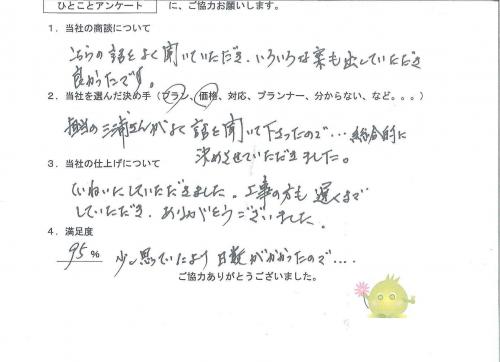 ひとことアンケート に、ご協力お願いします。
1．当社の商談について
こちらの話をよく聞いていただき、いろいろな案も出していただき
良かったです。
2．当社を選んだ決め手（プラン、価格、対応、プランナー、分からない、など。。。）
担当の三浦さんがよく話を聞いて下さったので… 総合的に
決めさせていただきました。
3．当社の仕上げについて
ていねいにしていただきました。工事の方も遅くまで
していただき、ありがとうございました。
4．満足度
95％ 少し思っていたより日数がかかったので….
ご協力ありがとうございました。